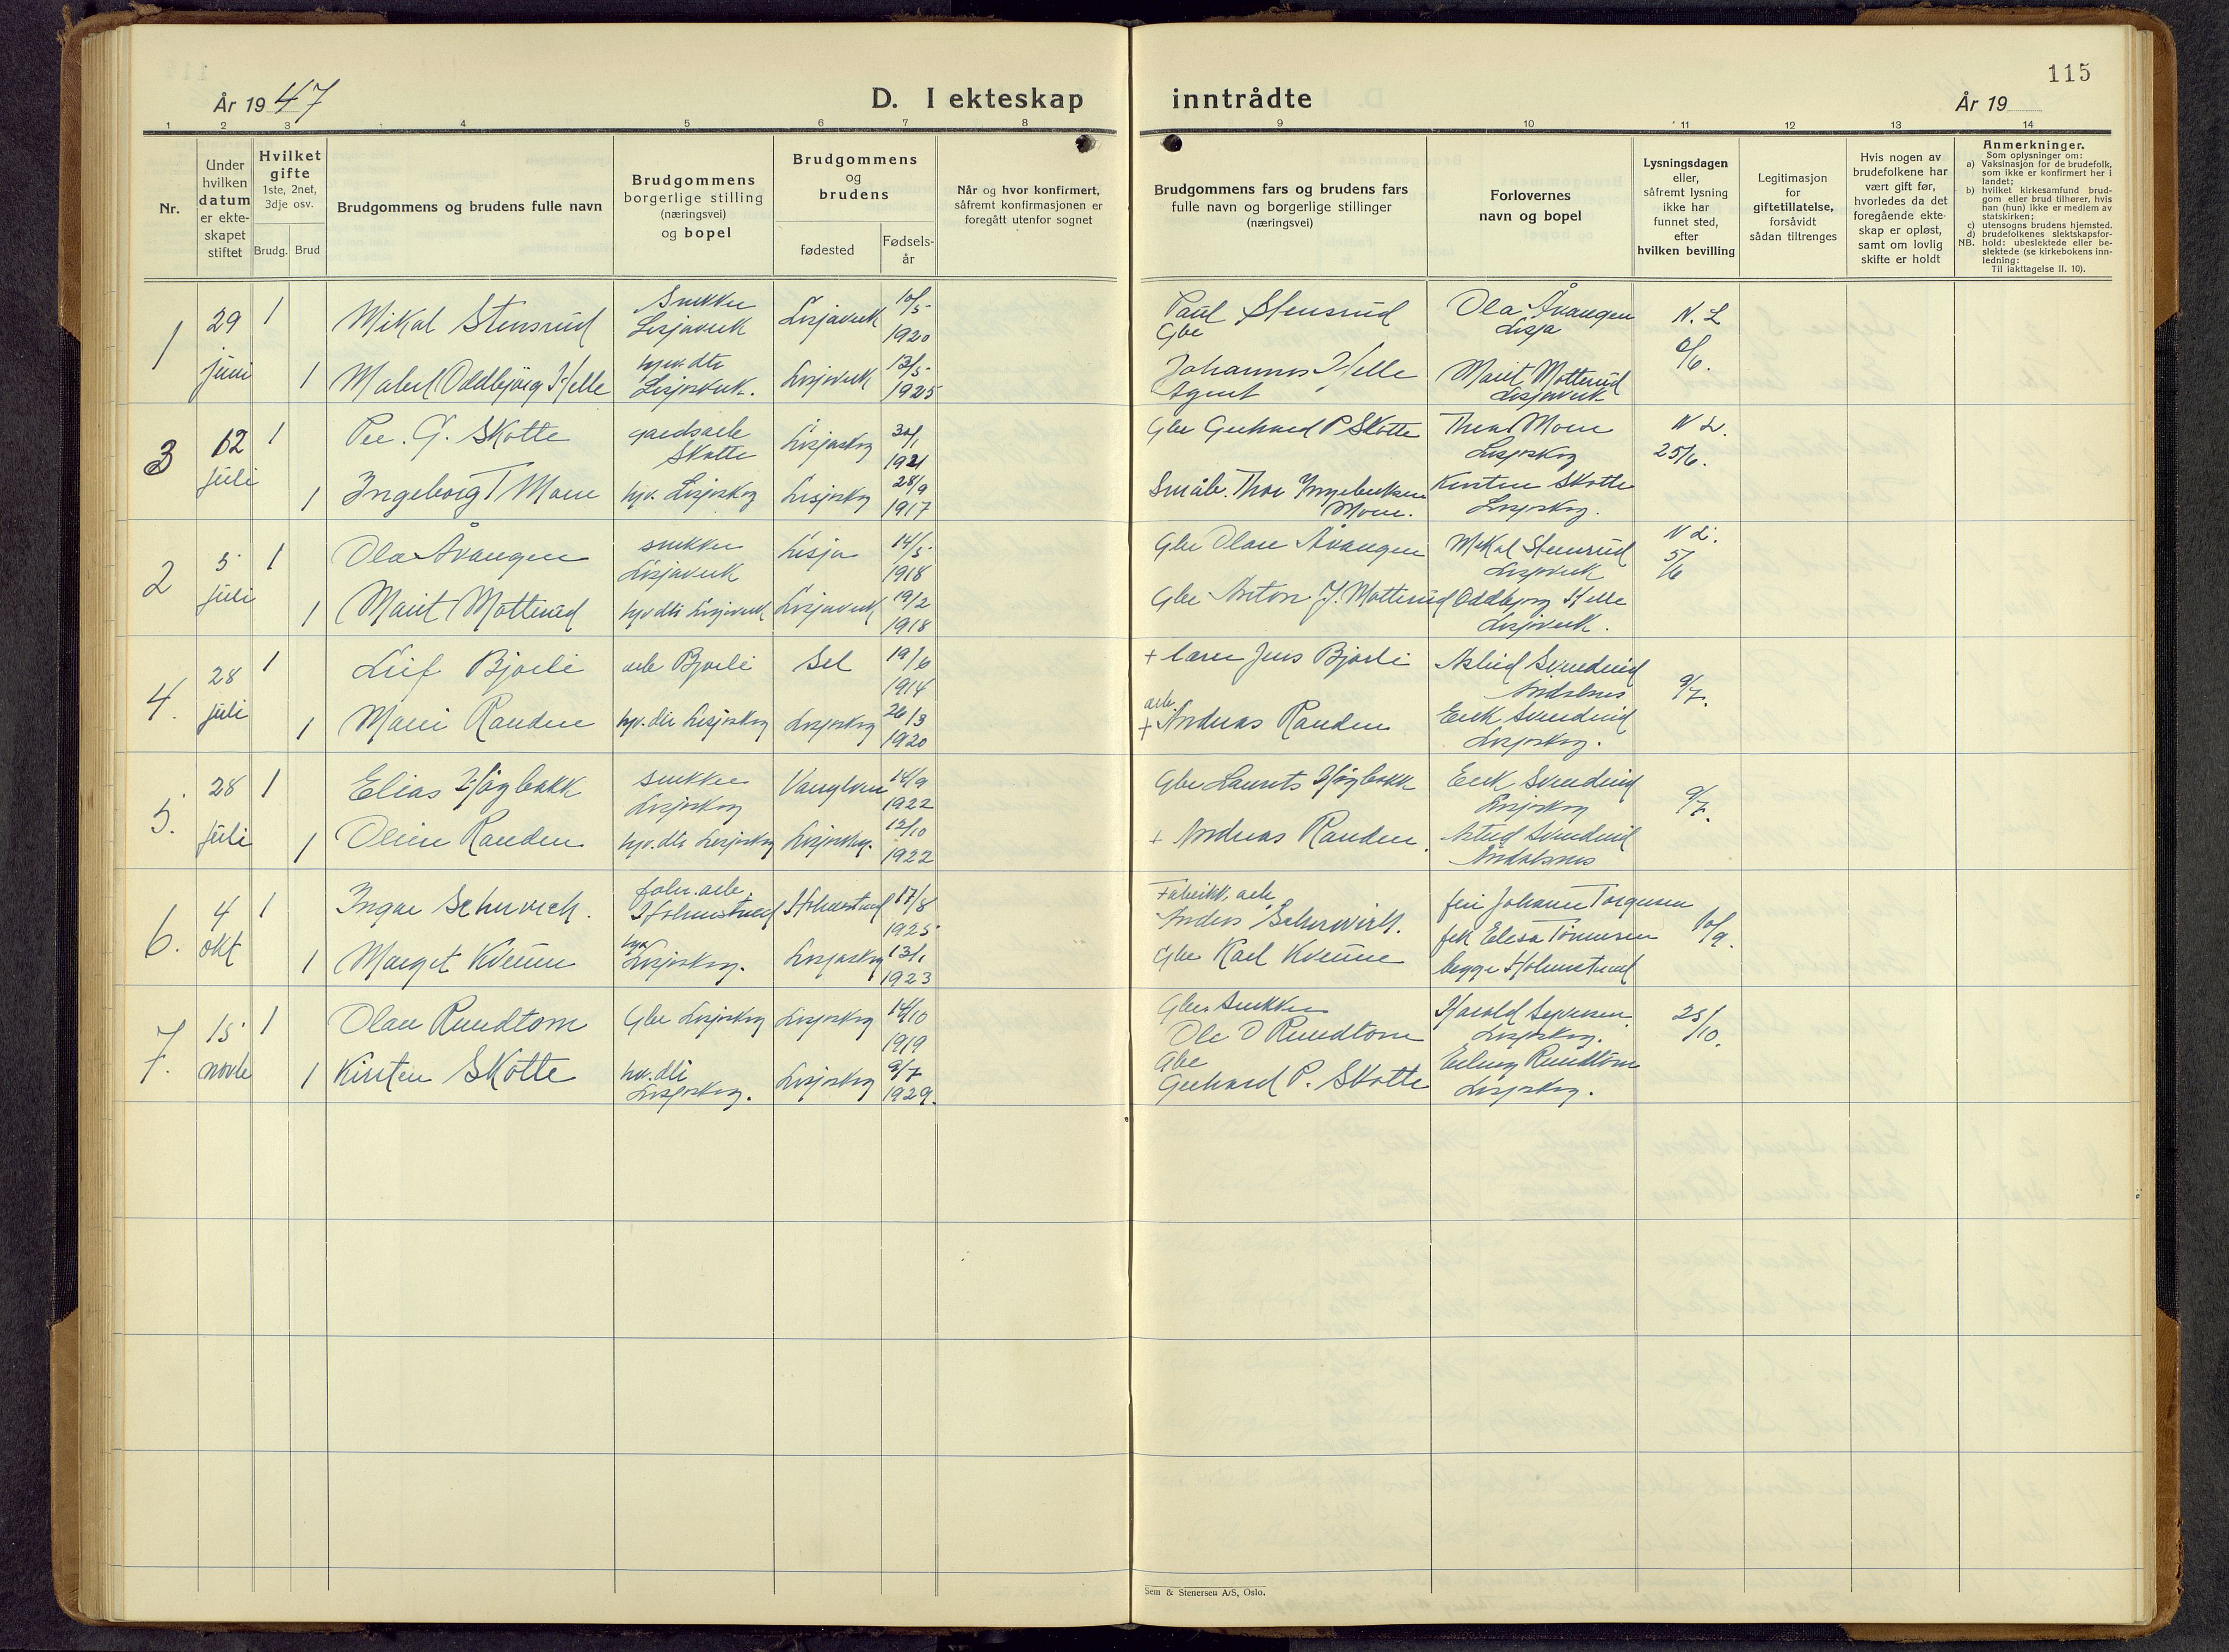 115
År 1947
D. I ekteskap inntrådte
År 19
1 2 3 4 5 6 7 8 9 10 11 12 13 14
Nr.
Under
hvilken
datum
er ekte-
skapet
stiftet
Hvilket
gifte
1ste, 2net,
3dje osv.
Brudg. Brud
Brudgommens og brudens fulle navn
Brudgommens
borgerlige stilling
(næringsvei)
og bopel
Brudgommens
og
brudens
fødested
Fødsels-
år
Når og hvor konfirmert,
såfremt konfirmasjonen er
foregått utenfor sognet
Brudgommens fars og brudens fars
fulle navn og borgerlige stillinger
(næringsvei)
Forlovernes
navn og bopel
Lysningsdagen
eller,
såfremt lysning
ikke har
funnet sted,
efter
hvilken bevilling
Legitimasjon
for
giftetillatelse,
forsåvidt
sådan tiltrenges
Hvis nogen av
brudefolkene har
vært gift før,
hvorledes da det
foregående ekte-
skap er opløst,
samt om lovlig
skifte er holdt
Anmerkninger.
Som oplysninger om:
a) Vaksinasjon for de brudefolk,
som ikke er konfirmert her i
landet;
b) hvilket kirkesamfund brud-
gom eller brud tilhører, hvis
han (hun) ikke er medlem av
statskirken;
c) utensogns brudens hjemsted.
d) brudefolkenes slektskapsfor-
NB. hold: ubeslektede eller be-
slektede (se kirkebokens inn-
ledning:
Til iakttagelse II. 10).
1
29
juni
1 Mikal Stensrud
Snekker
Lesjaverk
Lesjaverk
10/5
1920
Paul Stensrud
Gbr
Ola Åvangen
Lesja
N. L
1 Mabel Oddbjörg Helle
Lesjaverk.
Lesjaverk
13/5
1925
Johannes Helle
Agent
Marit Motterud
Lesjaverk
3
12
juli
1 Per. G. Skotte
gardsarb
Skotte
Lesjaskog
30/1
1921
Gbr Gerhard P Skotte
Thea Moen
Lesjaskog
N L.
25/6.
1 Ingeborg T Moen
hjv. Lesjaskog
Lesjaskog
28/9
1917
Småbr. Thor Ingebriktsen
Moen.
Kirsten Skotte
Lesjaskog.
2
5
juli
1 Ola Åvangen
snekker
Lesjaverk
Lesja
14/5
1918
Gbr Olav Åvangen
Mikal Stensrud
Lesjaverk
N L.
5/6
1 Marit Motterud
hjv dtr Lesjaverk
Lesjaverk
19/2
1918
Gbr Anton J. Motterud
Oddbjörg Helle
Lesjaverk.
4.
28
juli
1 Leif Bjorli
arb Bjorli
Sel
19/6
1914
+ lærer Jens Bjorli
Åndalsnes
9/7.
1 Mari Randen
hjv. dtr Lesjaskog
Lesjaskog
26/3
1920
arb
+ Andreas Randen
Lesjaskog.
5.
28
juli
1 Elias Högbakk
snekker
Lesjaskog
14/9
1922
Gbr Laurits Högbakk
Lesjaskog
9/7.
1 Oline Randen
hjv. dtr Lesjaskog
Lesjaskog.
12/10
1922
+ Andreas Randen.
Åndalsnes
6.
4
okt
1 Ingar Scherwich.
fabr. arb.
Holmestrand
Holmestrand
17/8
1925
Fabrikk. arb.
Anders Scherwich.
10/9.
1 Marget Kvenne
hjv
Lesjaskog.
Lesjaskog
13/1
1923
Gbr Karl Kvenne
begge Holmestrand
7.
15
novbr
1 Olav Rundtom
Gbr Lesjaskog
Lesjaskog
14/10
1919
Gbr Snekker
Ole O Rundtom
Harald Syversen.
Lesjaskog.
25/10.
1 Kirsten Skotte
hv. dtr
Lesjaskog.
Lesjaskog
9/7
1929.
Gbr
Gerhard P. Skotte
Erling Rundtom
Lesjaskog.
Sem & Stenersen A/S, Oslo.